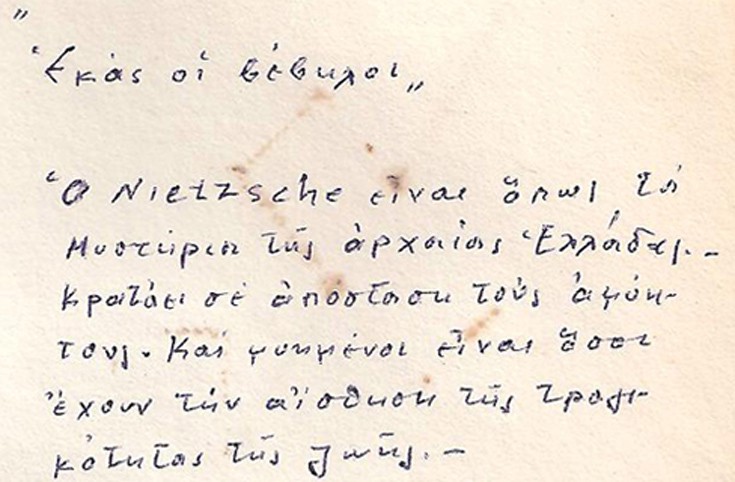 "
Ἑκὰς οἱ βέβηλοι"
Ὁ Nietzsche εἶναι ὅπως τὰ
Μυστήρια τῆς ἀρχαίας Ἑλλάδας.-
Κρατάει σὲ ἀπόσταση τοὺς ἀμύη-
τους. Καὶ μυημένοι εἶναι ὅσοι
ἔχουν τὴν αἴσθηση τῆς τραγι-
κότητας τῆς ζωῆς.-